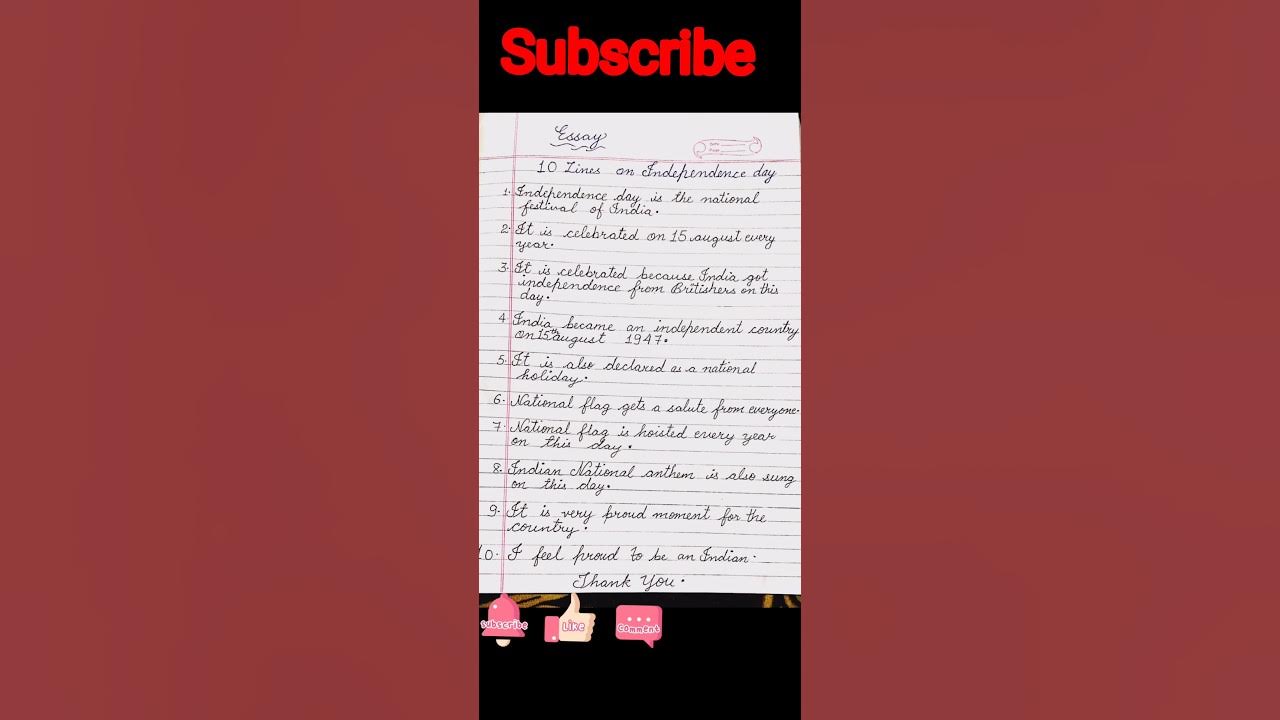 Subscribe
Essay
10 Lines on Independence day
1. Independence day is the national
festival of India.
2. It is celebrated on 15 august every
year.
3. It is celebrated because India got
independence from Britishers on this
day.
4 India became an independent country
on 15th august 1947.
5. It is also declared as a national
holiday.
6. National flag gets a salute from everyone.
7. National flag is hoisted every year
on this day.
8. Indian National anthem is also sung
on this day.
9. It is very proud moment for the
country.
10. I feel proud to be an Indian.
Thank You.
Subscribe
Like
Comment